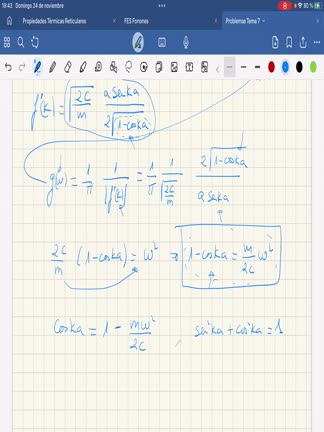 19:43 Domingo 24 de noviembre 80 %
Propiedades Térmicas Reticulares FES Fonones Problemas Tema 7
f'(k) = √(2C/m) a sen ka / 2√(1-cos ka)
g(ω) = 1/π 1/|f'(k)| = 1/π 1/√(2C/m) 2√(1-cos ka) / a sen ka
2C/m (1-cos ka) = ω² ⇒ 1-cos ka = m/2C ω²
cos ka = 1 - mω²/2C , sen²ka + cos²ka = 1